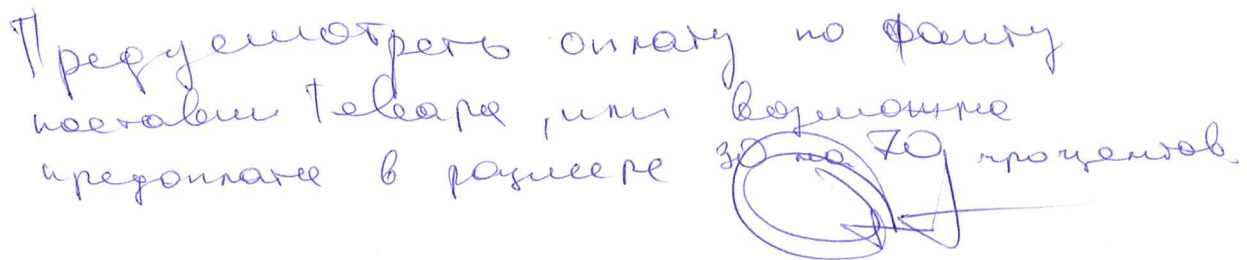 Предусмотреть оплату по факту
поставки Товара, или возможна
предоплата в размере 30 на 70 процентов